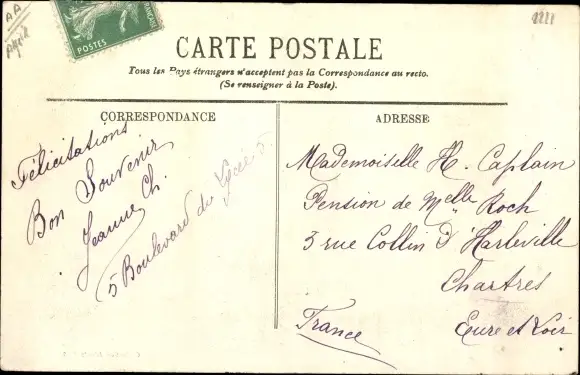 AA
POSTES
CARTE POSTALE
Tous les Pays étrangers n'acceptent pas la Correspondance au recto.
(Se renseigner à la Poste).
CORRESPONDANCE
Félicitations
Bon Souvenir
Jeanne Ch.
5 Boulevard du Lycée 5.
ADRESSE
Mademoiselle H. Caplain
Pension de Melle Roch
3 rue Collin d'Harleville
Chartres
Eure et Loir
France